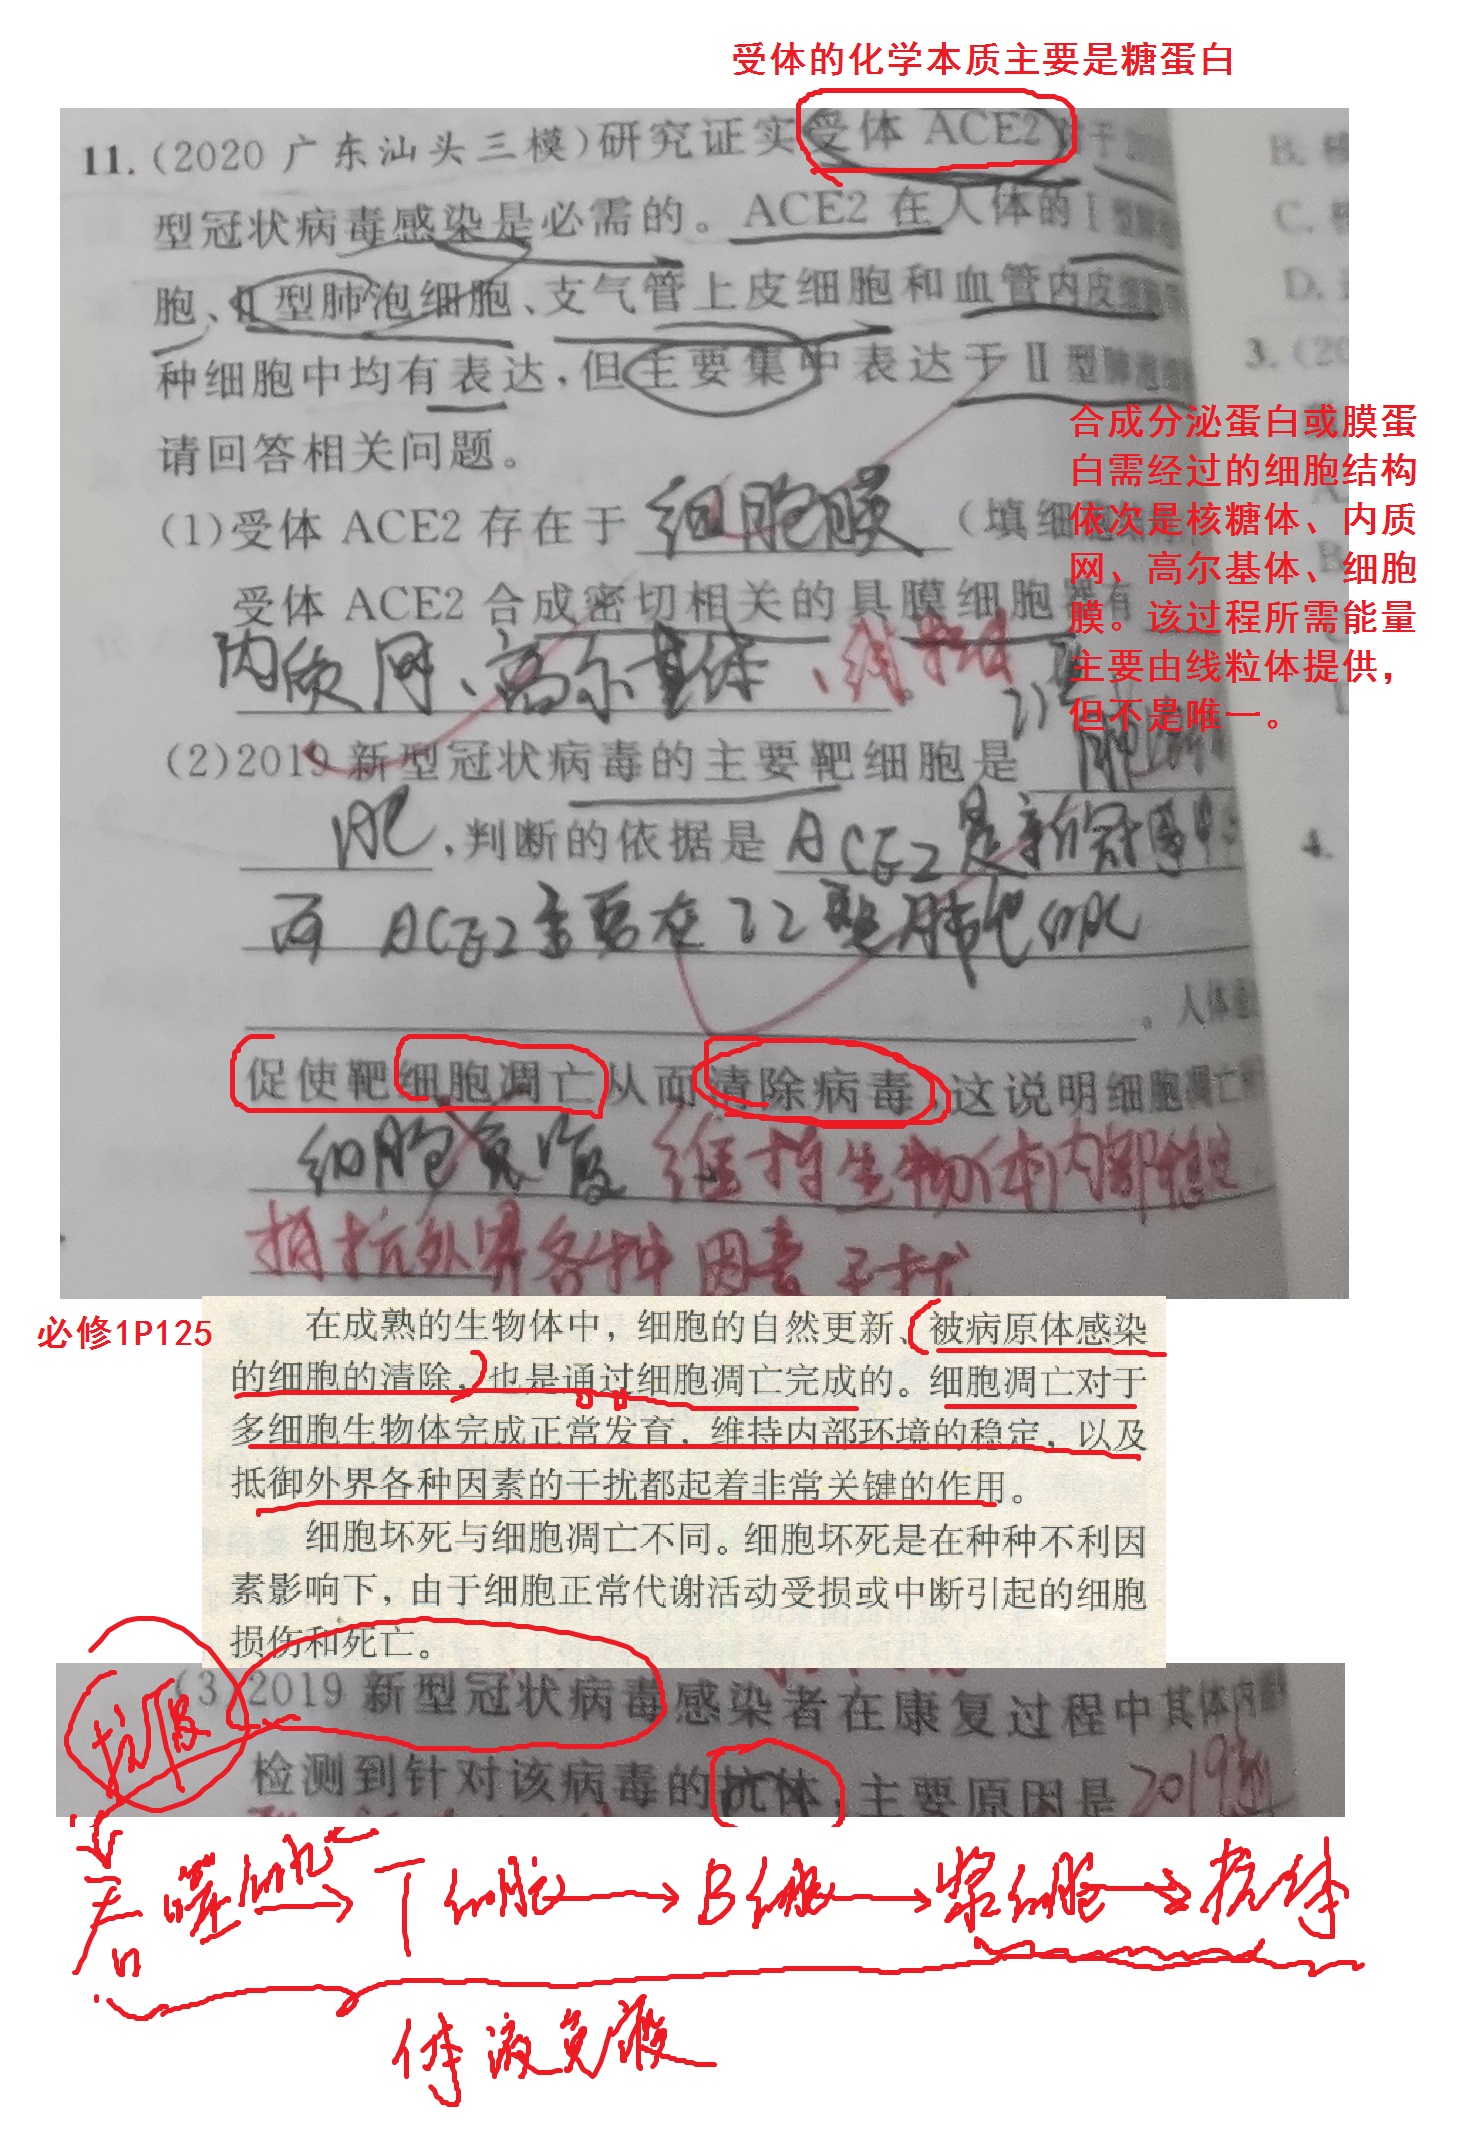 受体的化学本质主要是糖蛋白
11.(2020 广东汕头三模)研究证实受体 ACE2
型冠状病毒感染是必需的。ACE2 在人体的Ⅰ型肺
胞、Ⅱ型肺泡细胞、支气管上皮细胞和血管内皮
种细胞中均有表达,但主要集中表达于Ⅱ型肺泡
请回答相关问题。
合成分泌蛋白或膜蛋
白需经过的细胞结构
依次是核糖体、内质
网、高尔基体、细胞
膜。该过程所需能量
主要由线粒体提供，
但不是唯一。
(1)受体 ACE2 存在于 细胞膜 (填细
受体 ACE2 合成密切相关的具膜细胞器有
内质网、高尔基体、线粒体
(2)2019 新型冠状病毒的主要靶细胞是
,判断的依据是 ACE2是新冠
而 ACE2主要在22型肺
。人体
促使靶细胞凋亡从而清除病毒,这说明细胞凋亡
细胞免疫 维持生物体内部
抵抗外界各种因素干扰
必修1P125
在成熟的生物体中，细胞的自然更新、被病原体感染
的细胞的清除，也是通过细胞凋亡完成的。细胞凋亡对于
多细胞生物体完成正常发育，维持内部环境的稳定，以及
抵御外界各种因素的干扰都起着非常关键的作用。
细胞坏死与细胞凋亡不同。细胞坏死是在种种不利因
素影响下，由于细胞正常代谢活动受损或中断引起的细胞
损伤和死亡。
(3)2019 新型冠状病毒感染者在康复过程中其体内
检测到针对该病毒的抗体,主要原因是 2019
吞噬细胞→T细胞→B细胞→浆细胞→抗体
体液免疫
B.
C.
D.
3.(20
4.